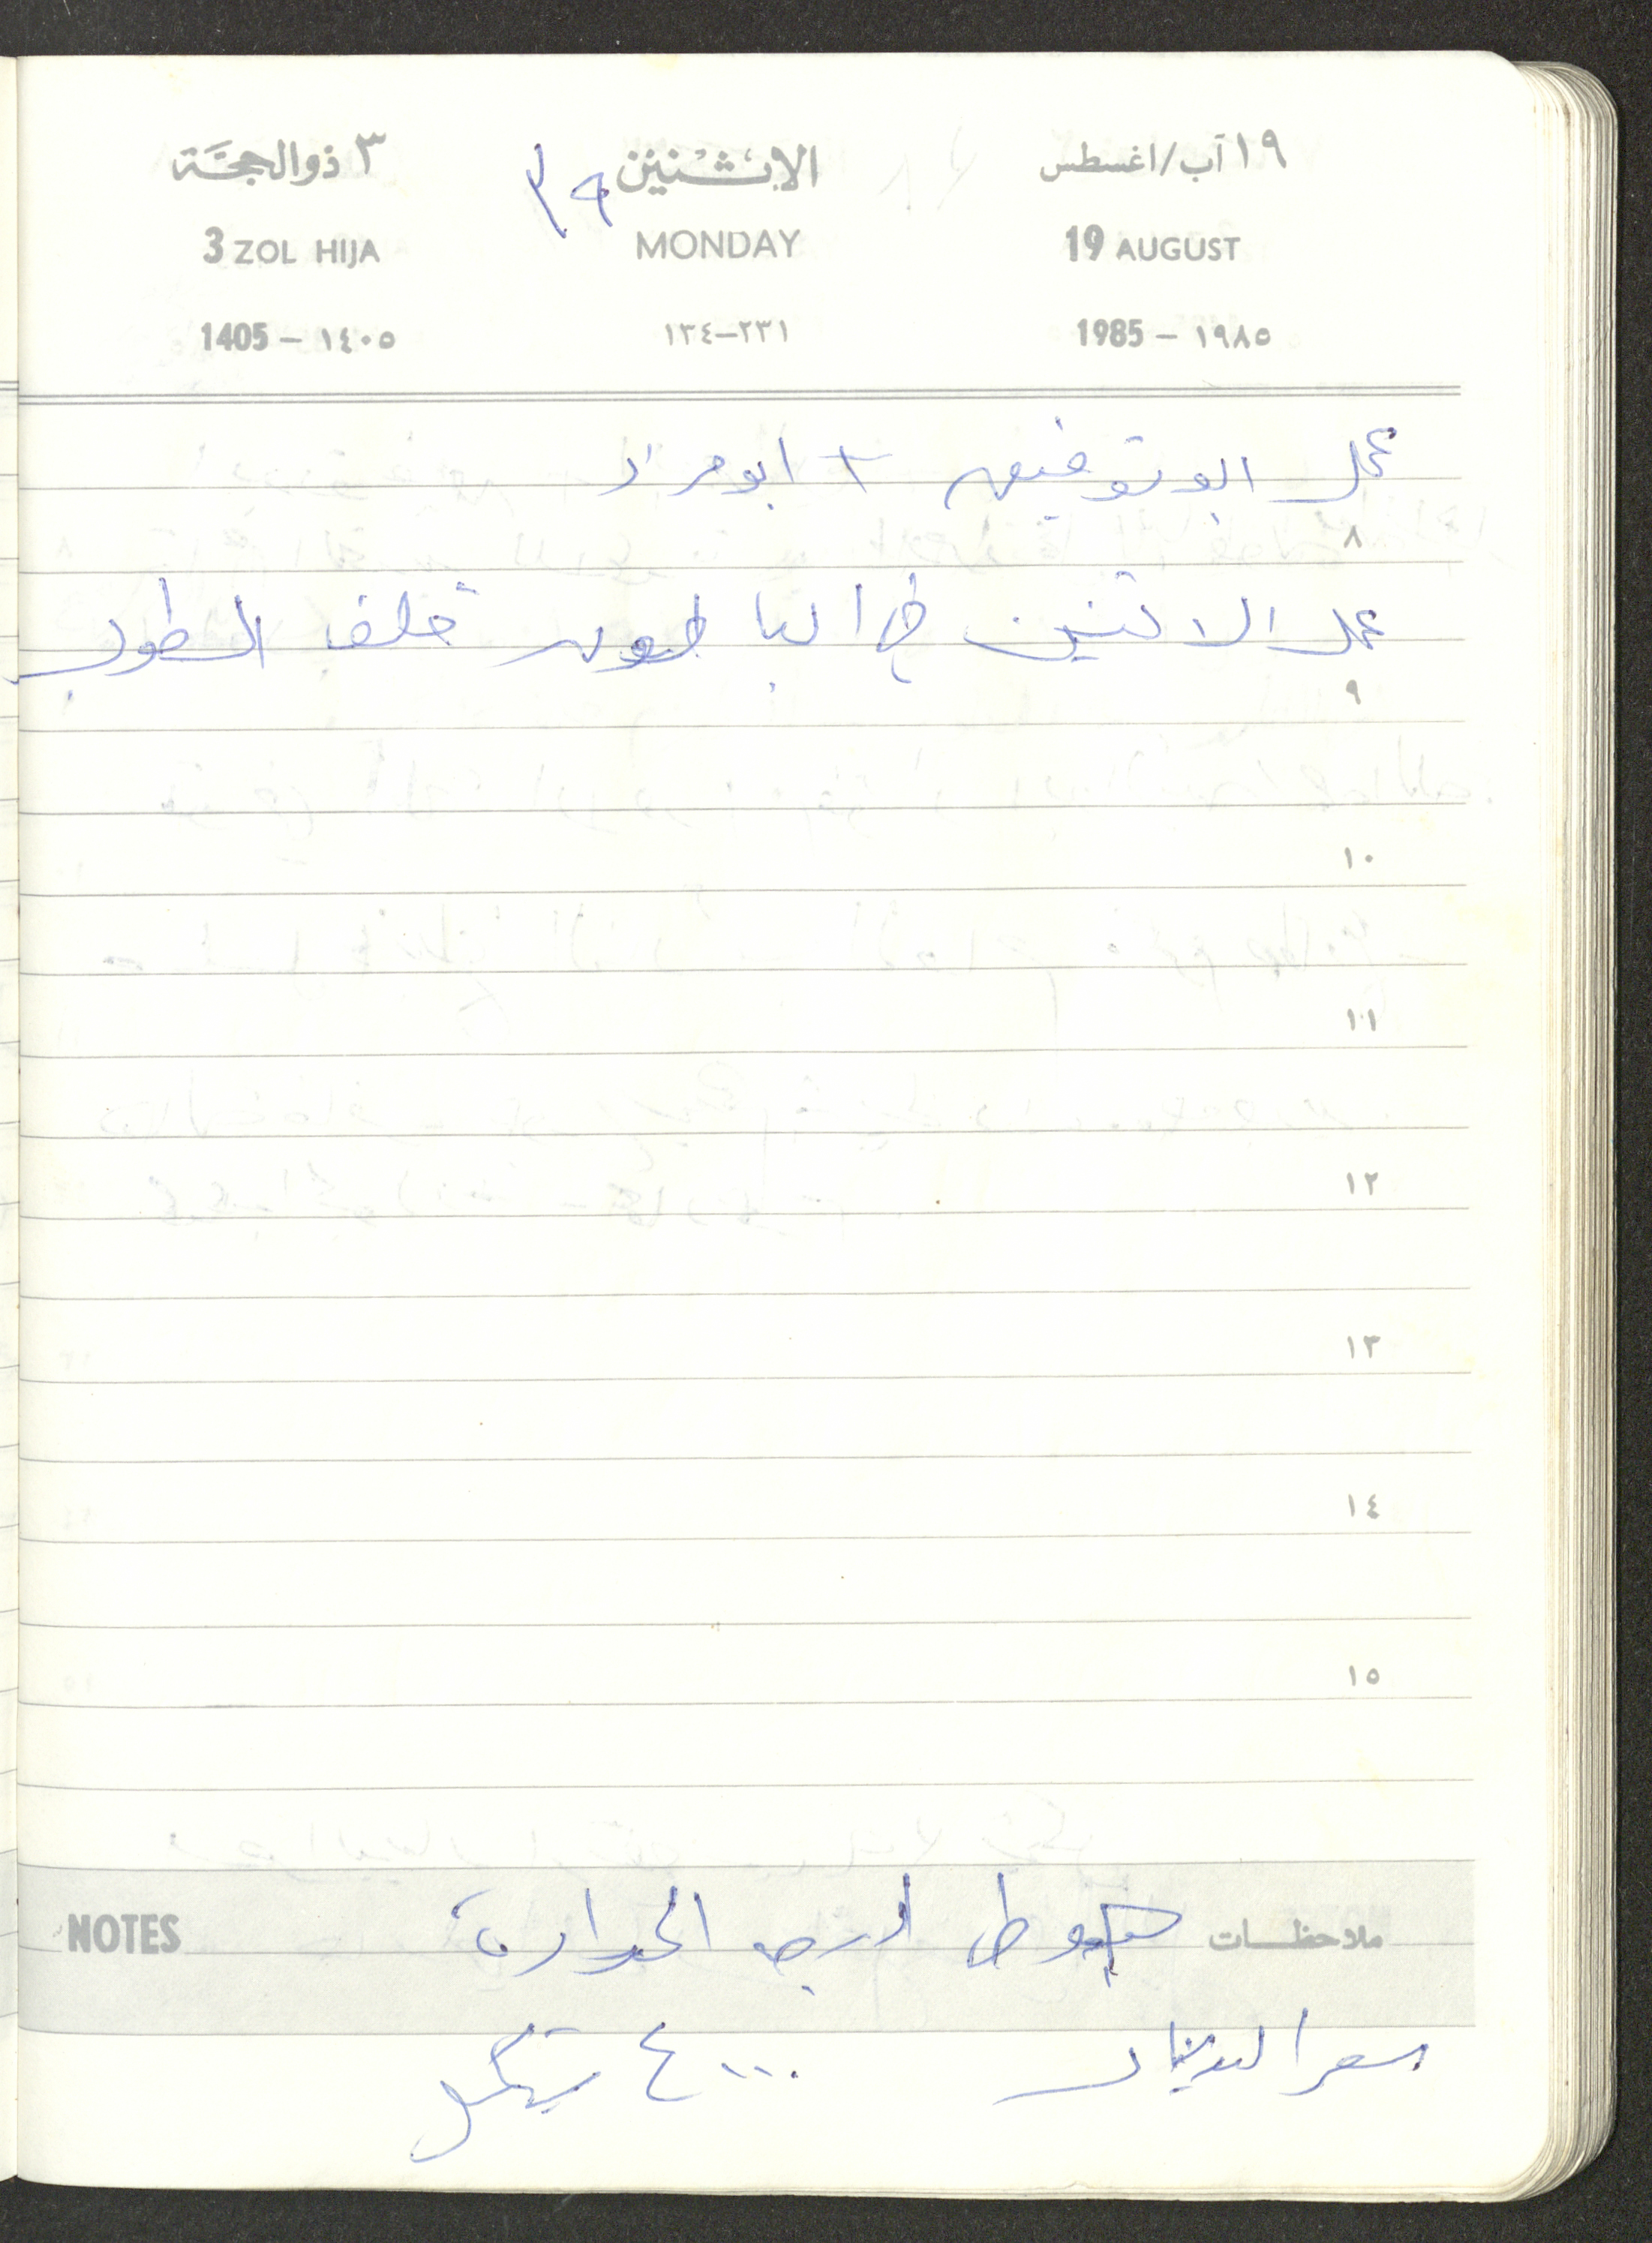 ١٩ آب/اغسطس الاثنين ٣ ذوالحجة
19 AUGUST MONDAY 3 ZOL HIJA
1985 — ١٩٨٥ ٢٣١—١٣٤ 1405 — ١٤٠٥
عمل ابو توفيق + ابو مراد
٨
عمل الاثنين في الباطون خلف الطوب
٩
١٠
١١
١٢
١٣
١٤
١٥
ملاحظات هبوط درجه الحرارة NOTES
سعر الدينار ٤٠٠٠ شيكل